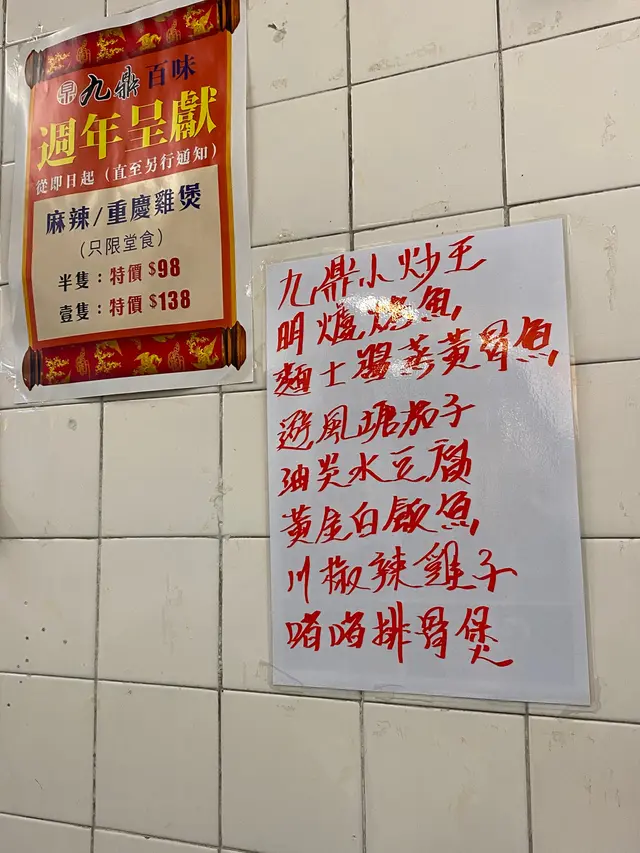 鼎 九鼎百味
週年呈獻
從即日起（直至另行通知）
麻辣/重慶雞煲
（只限堂食）
半隻：特價$98
壹隻：特價$138
九鼎小炒王
明爐烤魚
麵士醬蒸黃骨魚
避風塘茄子
油炎水豆腐
黃金白飯魚
川椒辣雞子
啫啫排骨煲